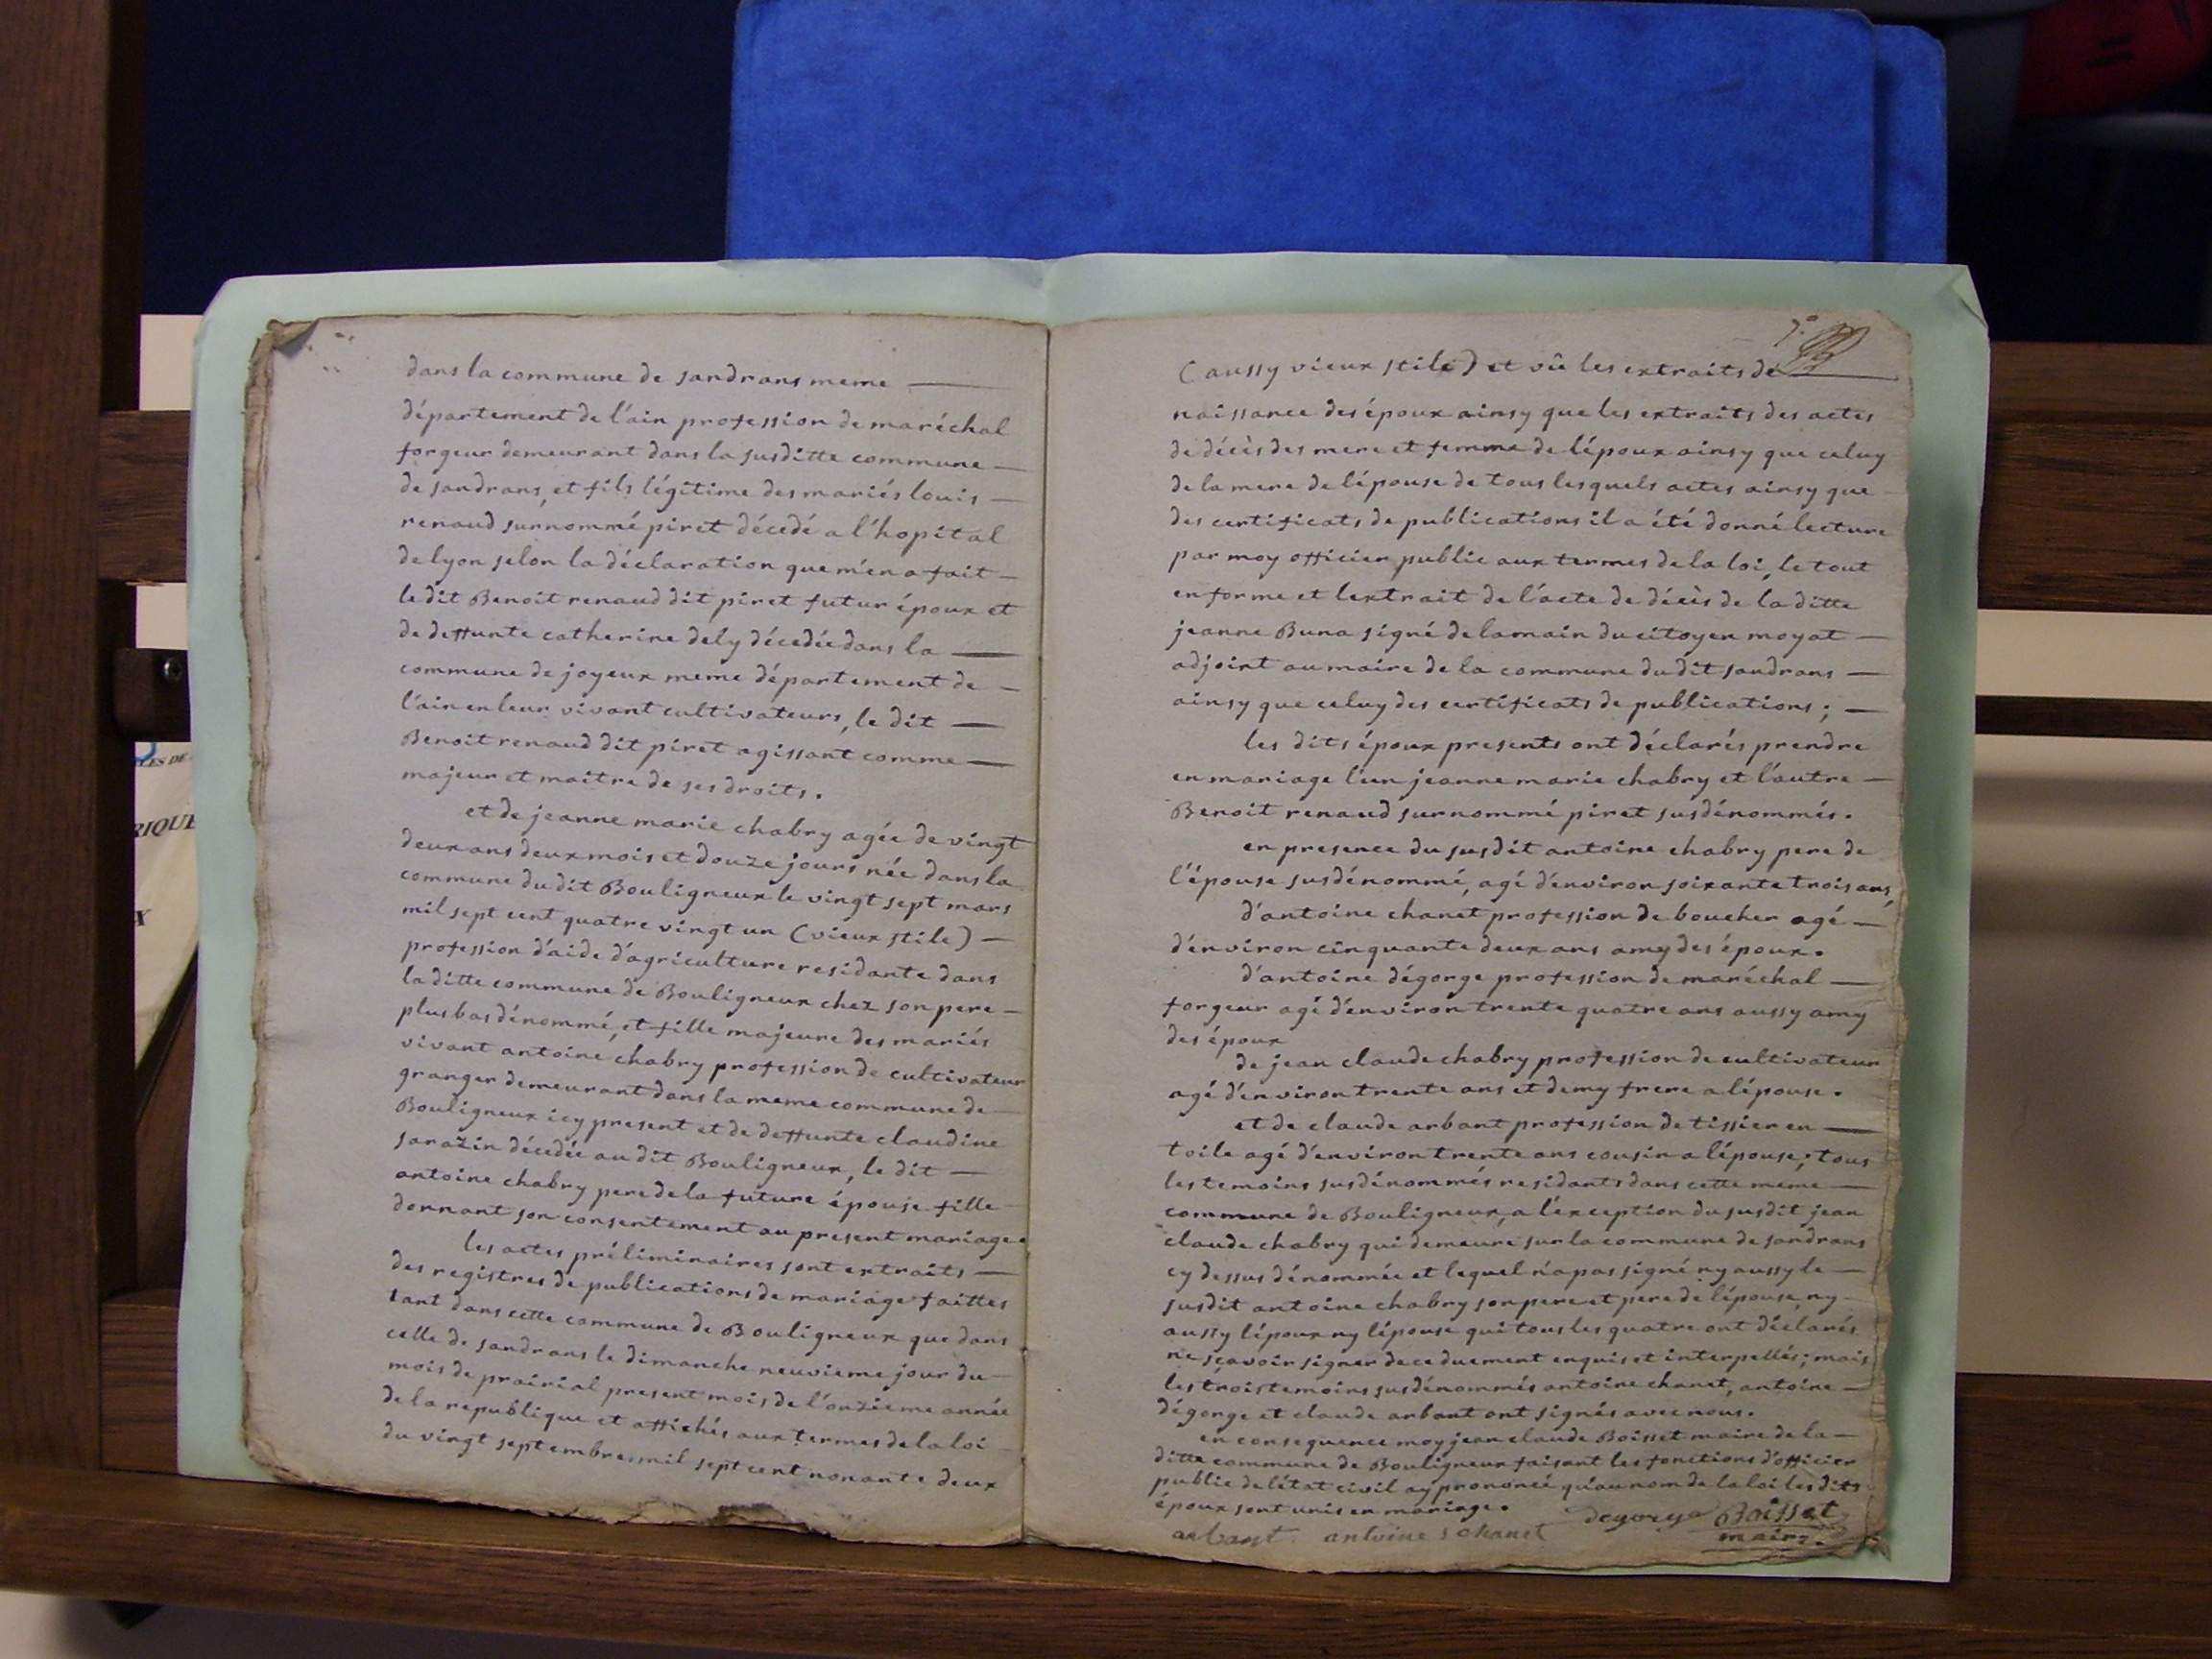 dans la commune de sandrans meme
département de l'ain profession de maréchal
forgeur demeurant dans la susditte commune
de sandrans, et fils légitime des mariés louis
renaud surnommé piret décedé a l'hopital
de lyon selon la déclaration que m'en a fait
le dit Benoit renaud dit piret futur époux et
de deffunte catherine dely décedée dans la
commune de joyeux meme département de
l'ain en leur vivant cultivateurs, le dit
Benoit renaud dit piret agissant comme
majeur et maitre de ses droits.
et de jeanne marie chabry agée de vingt
deux ans deux mois et douze jours née dans la
commune du dit Bouligneux le vingt sept mars
mil sept cent quatre vingt un (vieux stile)
profession d'aide d'agriculture residante dans
la ditte commune de Bouligneux chez son pere
plus bas dénommé, et fille majeure des mariés
vivant antoine chabry profession de cultivateur
granger demeurant dans la meme commune de
Bouligneux icy present et de deffunte claudine
sarazin décedée au dit Bouligneux, le dit
antoine chabry pere de la future épouse fille
donnant son consentement au present mariage.
les actes préliminaires sont extraits
des registres de publications de mariage faittes
tant dans cette commune de Bouligneux que dans
celle de sandrans le dimanche neuvieme jour du
mois de prairial present mois, de l'onzieme année
de la republique et affichés aux termes de la loi
du vingt septembre mil sept cent nonante deux
(aussy vieux stile) et vû les extraits de
naissance des époux ainsy que les extraits des actes
de décès des mere et femme de l'époux ainsy que celuy
de la mere de l'épouse de tous lesquels actes ainsy que
des certificats de publications il a été donné lecture
par moy officier public aux termes de la loi, le tout
en forme et lextrait de l'acte de décès de la ditte
jeanne Buna signé de la main du citoyen moyat
adjoint au maire de la commune du dit sandrans
ainsy que celuy des certificats de publications;
les dits époux presents ont déclarés prendre
en mariage l'un jeanne marie chabry et l'autre
Benoit renaud surnommé piret susdénommés.
en presence du susdit antoine chabry pere de
l'épouse susdénommé, agé d'environ soixante trois ans,
d'antoine chanet profession de boucher agé
d'environ cinquante deux ans amy des époux.
d'antoine dégorge profession de maréchal
forgeur agé d'environ trente quatre ans aussy amy
des époux
de jean claude chabry profession de cultivateur
agé d'environ trente ans et demy frere a l'épouse.
et de claude arbant profession de tissier en
toile agé d'environ trente ans cousin a lépouse; tous
les temoins susdénommés residants dans cette meme
commune de Bouligneux, a l'exception du susdit jean
claude chabry qui demeure sur la commune de sandrans
cy dessus dénommée et lequel n'a pas signé ny aussy le
susdit antoine chabry son pere et pere de lépouse, ny
aussy lépoux ny lépouse qui tous les quatre ont déclarés
ne sçavoir signer de ce duement enquis et interpellés; mais
les trois temoins susdénommés antoine chanet, antoine
dégorge et claude arbant ont signés avec nous.
en consequence moy jean claude Boisset maire de la
ditte commune de Bouligneux faisant les fonctions d'officier
public de l'état civil ay prononcé qu'au nom de la loi les dits
époux sont unis en mariage.
arbant antoine chanet degorge Boisset
maire.